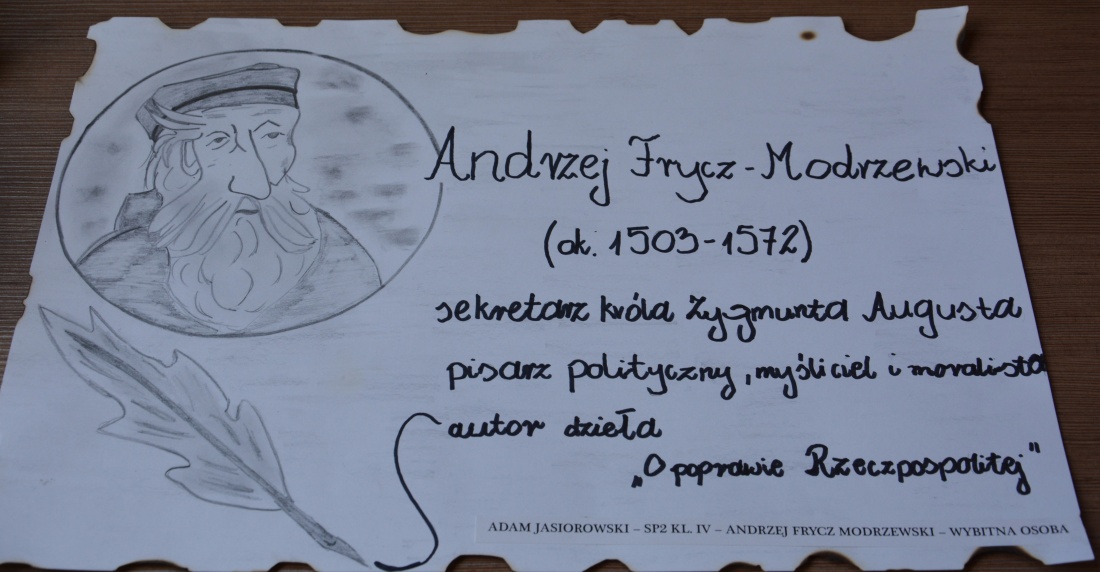 Andrzej Frycz-Modrzewski
(ok. 1503-1572)
sekretarz króla Zygmunta Augusta
pisarz polityczny, myśliciel i moralista
autor dzieła
„O poprawie Rzeczpospolitej"
ADAM JASIOROWSKI – SP2 KL. IV – ANDRZEJ FRYCZ MODRZEWSKI – WYBITNA OSOBA